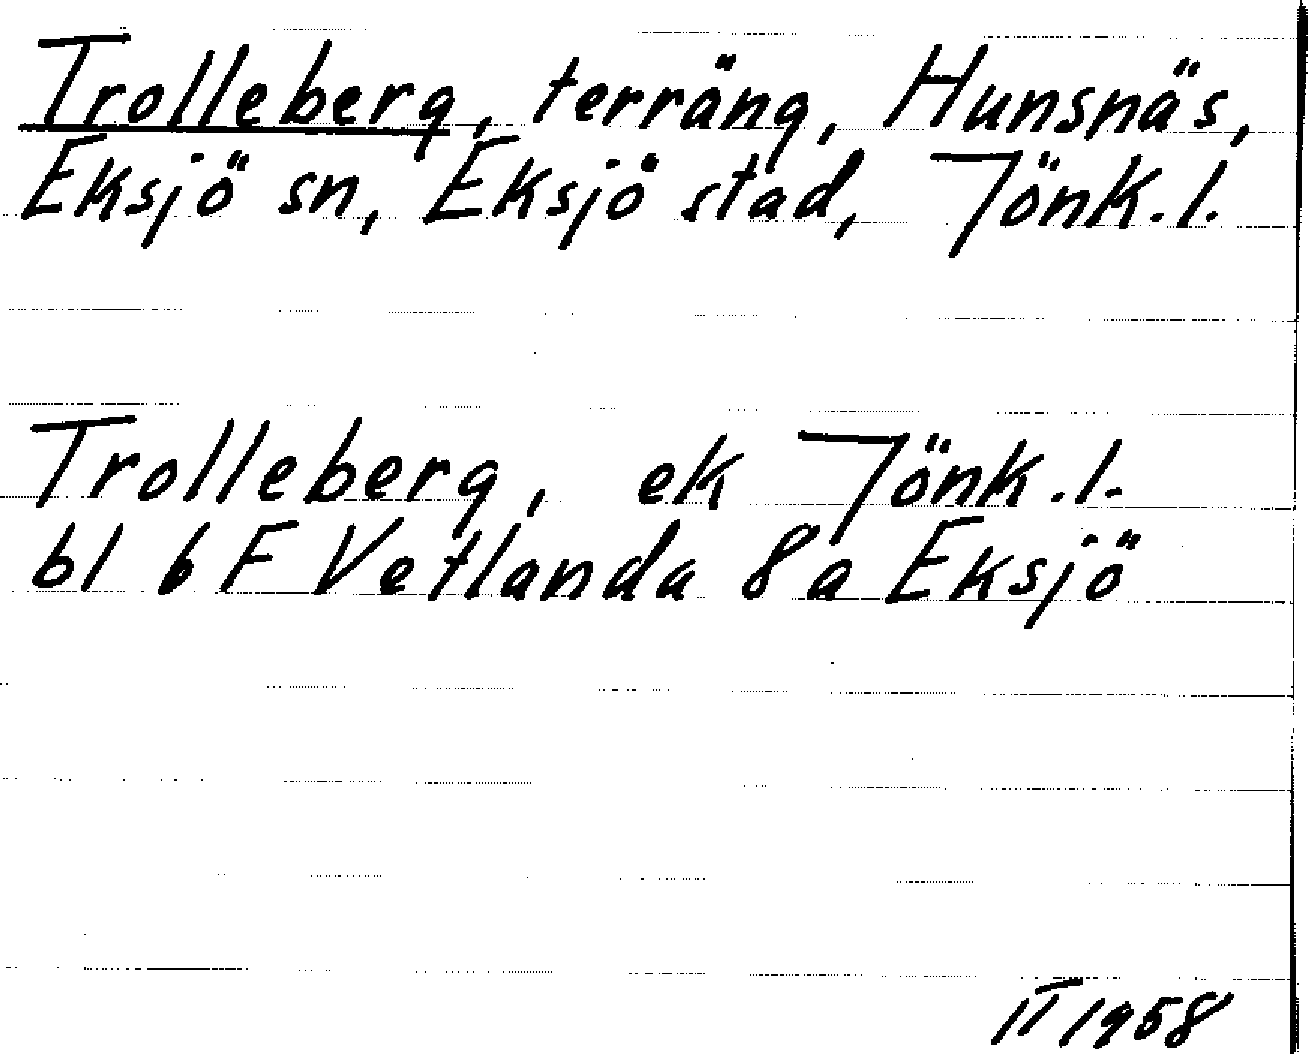 Trolleberg, terräng, Hunsnäs,
Eksjö sn, Eksjö stad, Jönk.l.
Trolleberg, ek Jönk.l.
bl 6 F Vetlanda 8a Eksjö
II 1958